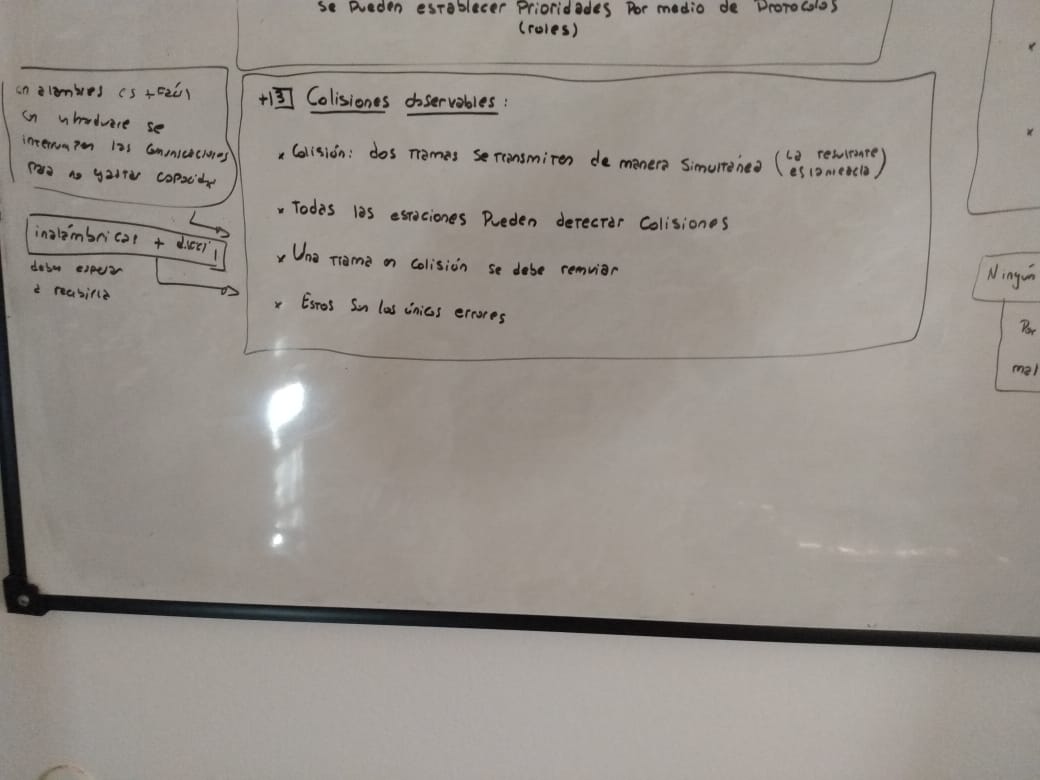 se pueden establecer Prioridades Por medio de Protocolos
(roles)
en alambres es + fácil
un hardware se
interrumpen las comunicaciones
para no gastar capacidad
inalámbricas + difícil
debe esperar
a recibirla
+ 3 Colisiones observables:
× Colisión: dos tramas se transmiten de manera simultánea (La resultante
es la mezcla)
× Todas las estaciones Pueden detectar Colisiones
× Una trama en colisión se debe
× Estos son los únicos errores
Ningún
Por
mal